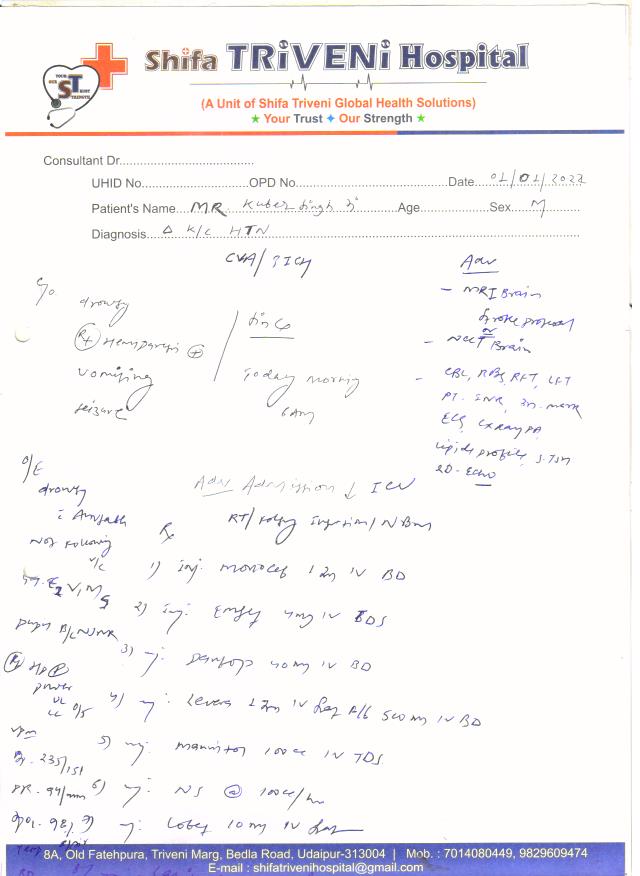 Shifa TRiVENi Hospital
YOUR OUR ST TRUST STRENGTH
(A Unit of Shifa Triveni Global Health Solutions)
★ Your Trust ✦ Our Strength ★
Consultant Dr.
UHID No. OPD No. Date 01/01/2022
Patient's Name MR. Kuber Singh Ji Age Sex M
Diagnosis Δ K/C HTN
CVA/ ? ICH
Adv
- MRI Brain
Stroke protocol
or
- NCCT Brain
- CBC, RBS, RFT, LFT
PT-INR
ECG, CXRay PA
Lipid profile, S.TSH
2D-Echo
C/o
drowsy
Rt Hemiparesis +
vomiting
seizure
since
Today morning
6AM
O/E
drowsy
Not following
V/C
E2 V1 M5
Pupil B/L NSNR
Rt
power
UL
LL 0/5
BP. 235/151
PR. 94/min
SpO2. 98%
Adv Admission ↓ ICU
Rx RT/Foley insertion/
1) inj. monocef 1 gm IV BD
2) inj. Emset 4mg IV TDS
3) inj. pantop 40mg IV BD
4) inj. Levera 1 gm IV stat f/b 500mg IV BD
5) inj. mannitol 100cc IV TDS
6) inj. NS @ 100cc/hr
7) inj. Lobet 10mg IV stat
8A, Old Fatehpura, Triveni Marg, Bedla Road, Udaipur-313004 | Mob. : 7014080449, 9829609474
E-mail : shifatrivenihospital@gmail.com